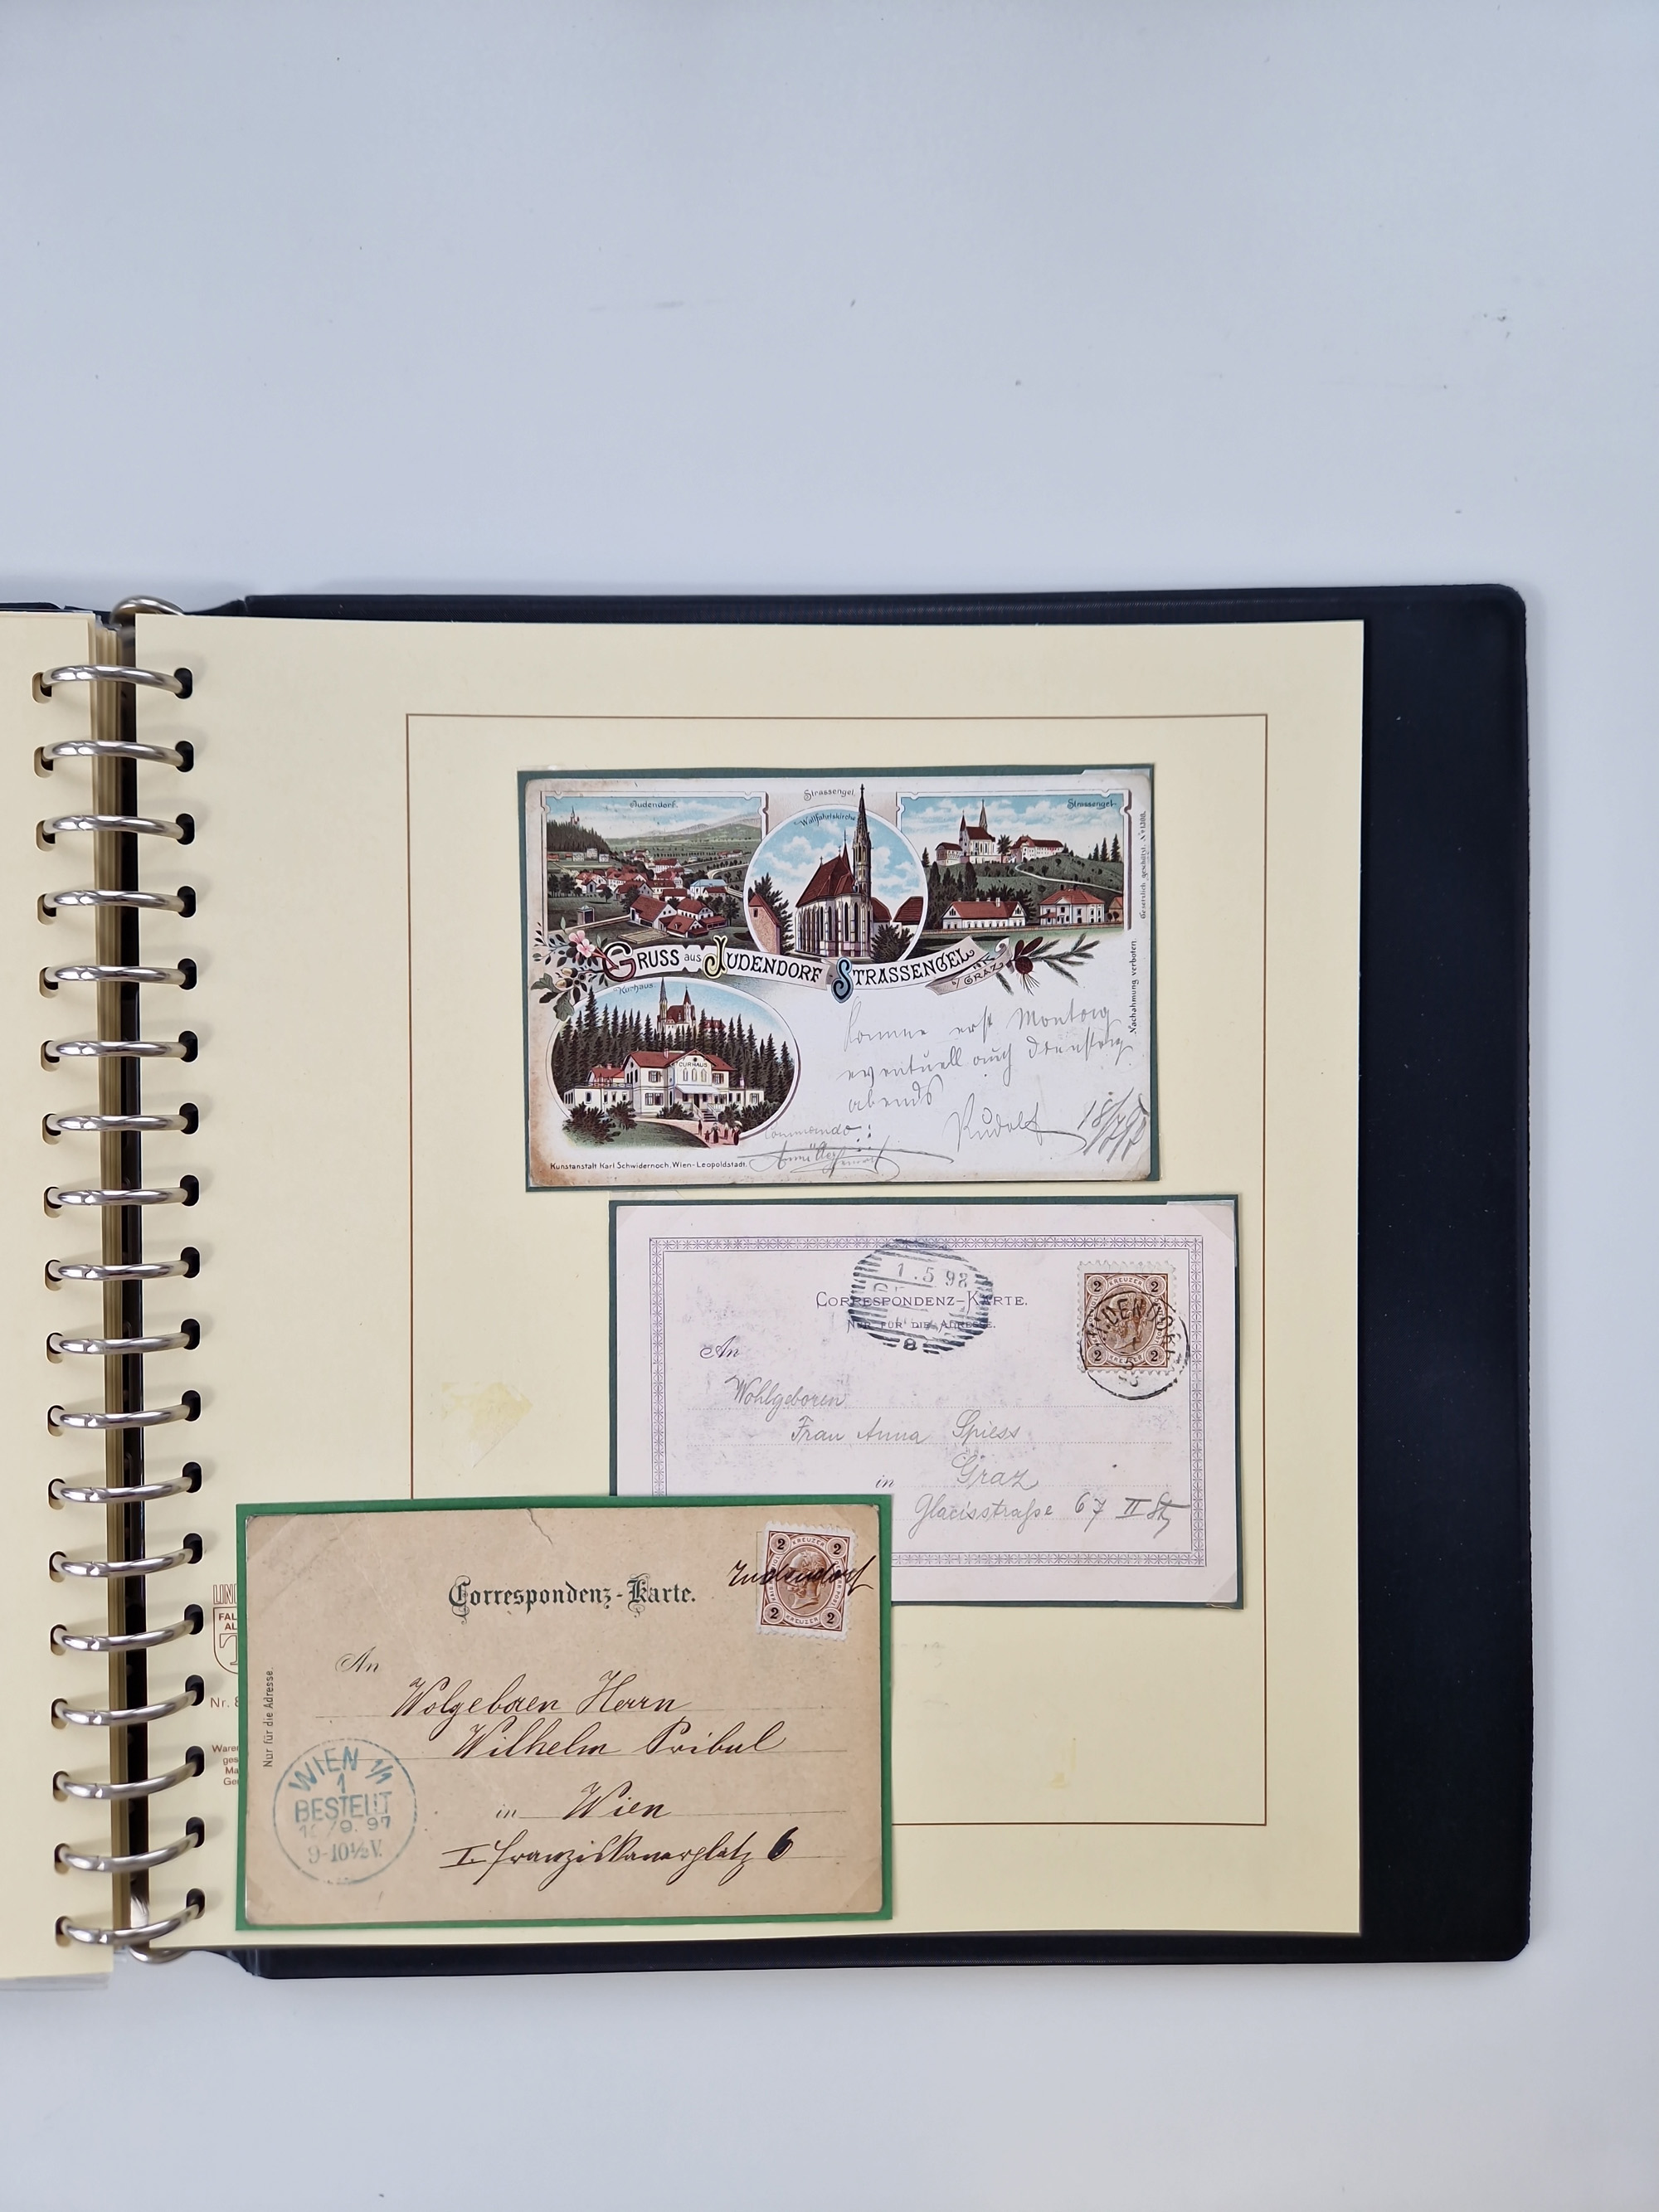 Judendorf.
Strassengel.
Wallfahrtskirche
Strassengel.
Gesetzlich geschützt. No 1308.
Nachahmung verboten.
GRUSS aus JUDENDORF-STRASSENGEL
b/ GRAZ.
Kurhaus.
CURHAUS
komme erst Montag
eventuell auch Dienstag
abends
Rudolf
Kunstanstalt Karl Schwidernoch. Wien-Leopoldstadt.
1.5 98
8
CORRESPONDENZ-KARTE.
NUR FÜR DIE ADRESSE.
2 KREUZER 2
2 KREUZER 2
JUDENDORF
An
Wohlgeboren
Frau Anna Spiess
in Graz
Glacisstraße 67 II St
Correspondenz-Karte.
2 KREUZER 2
2 KREUZER 2
Judendorf
An
Wolgeboren Herrn
Wilhelm Pribul
in Wien
I. Franziskanerplatz 6
Nur für die Adresse.
WIEN 1/1
1
BESTELLT
9. 97
9-10½V.
LIN
FAL
AL
Nr. 8
Ware
ges
Ma
Ge